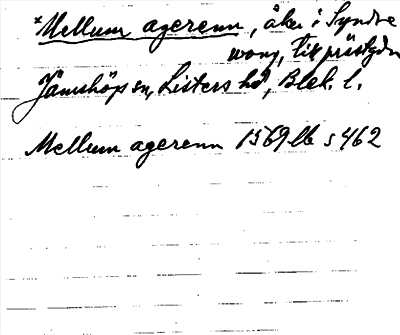 *Mellum agerenn, åker i Syndre
wong, till prästgdn
Jämshögs sn, Listers hd, Blek. l.
Mellum agerenn 1569 lb s 462